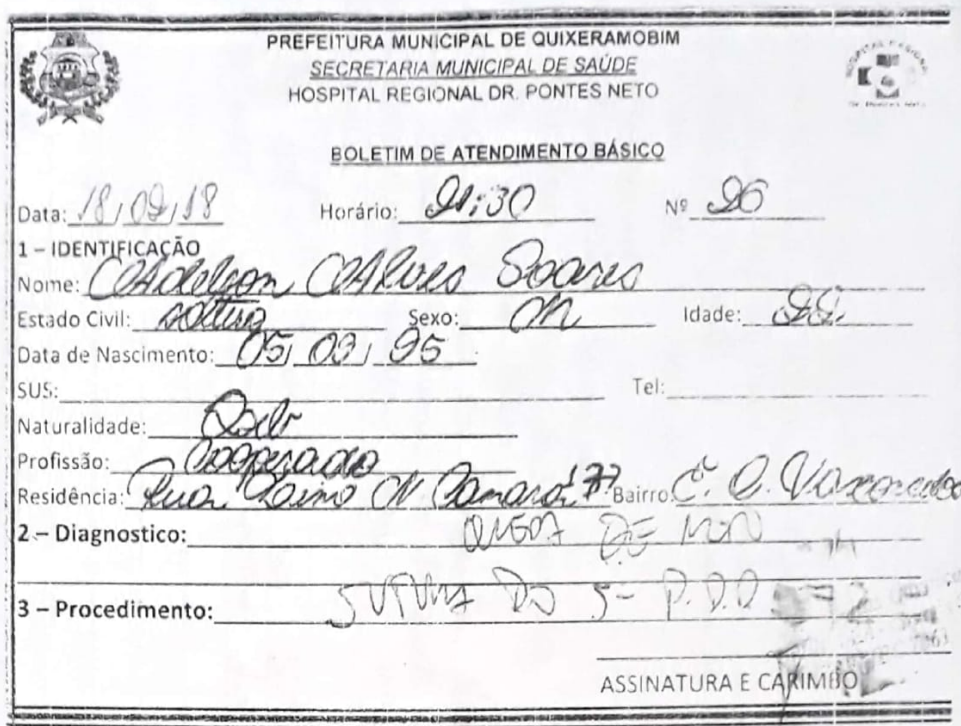 PREFEITURA MUNICIPAL DE QUIXERAMOBIM
SECRETARIA MUNICIPAL DE SAÚDE
HOSPITAL REGIONAL DR. PONTES NETO
HOSPITAL REGIONAL
Dr. Pontes Neto
BOLETIM DE ATENDIMENTO BÁSICO
Data: 18/09/18 Horário: 21:30 Nº 26
1 – IDENTIFICAÇÃO
Nome: Adelson Alves Soares
Estado Civil: solteiro Sexo: M Idade:
Data de Nascimento: 05/03/95
SUS: Tel:
Naturalidade: Qxb
Profissão: cooperado
Residência: Rua M. Camara 177 Bairro:
2 – Diagnostico: QUEDA DE
3 – Procedimento: SUTURA DO 5-
ASSINATURA E CARIMBO